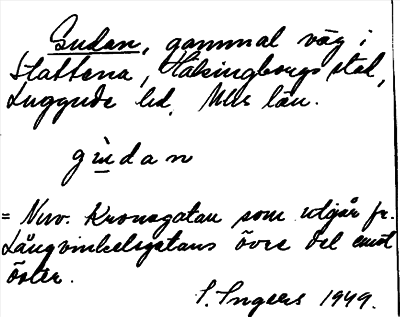 Gudan, gammal väg i
Slattena, Hälsingborgs stad,
Luggude hd. Mlh län.
gùdan
= Nuv. Kronogatan som utgår fr.
Långvinkelsgatans övre del emot
öster.
S. Ingers 1949.